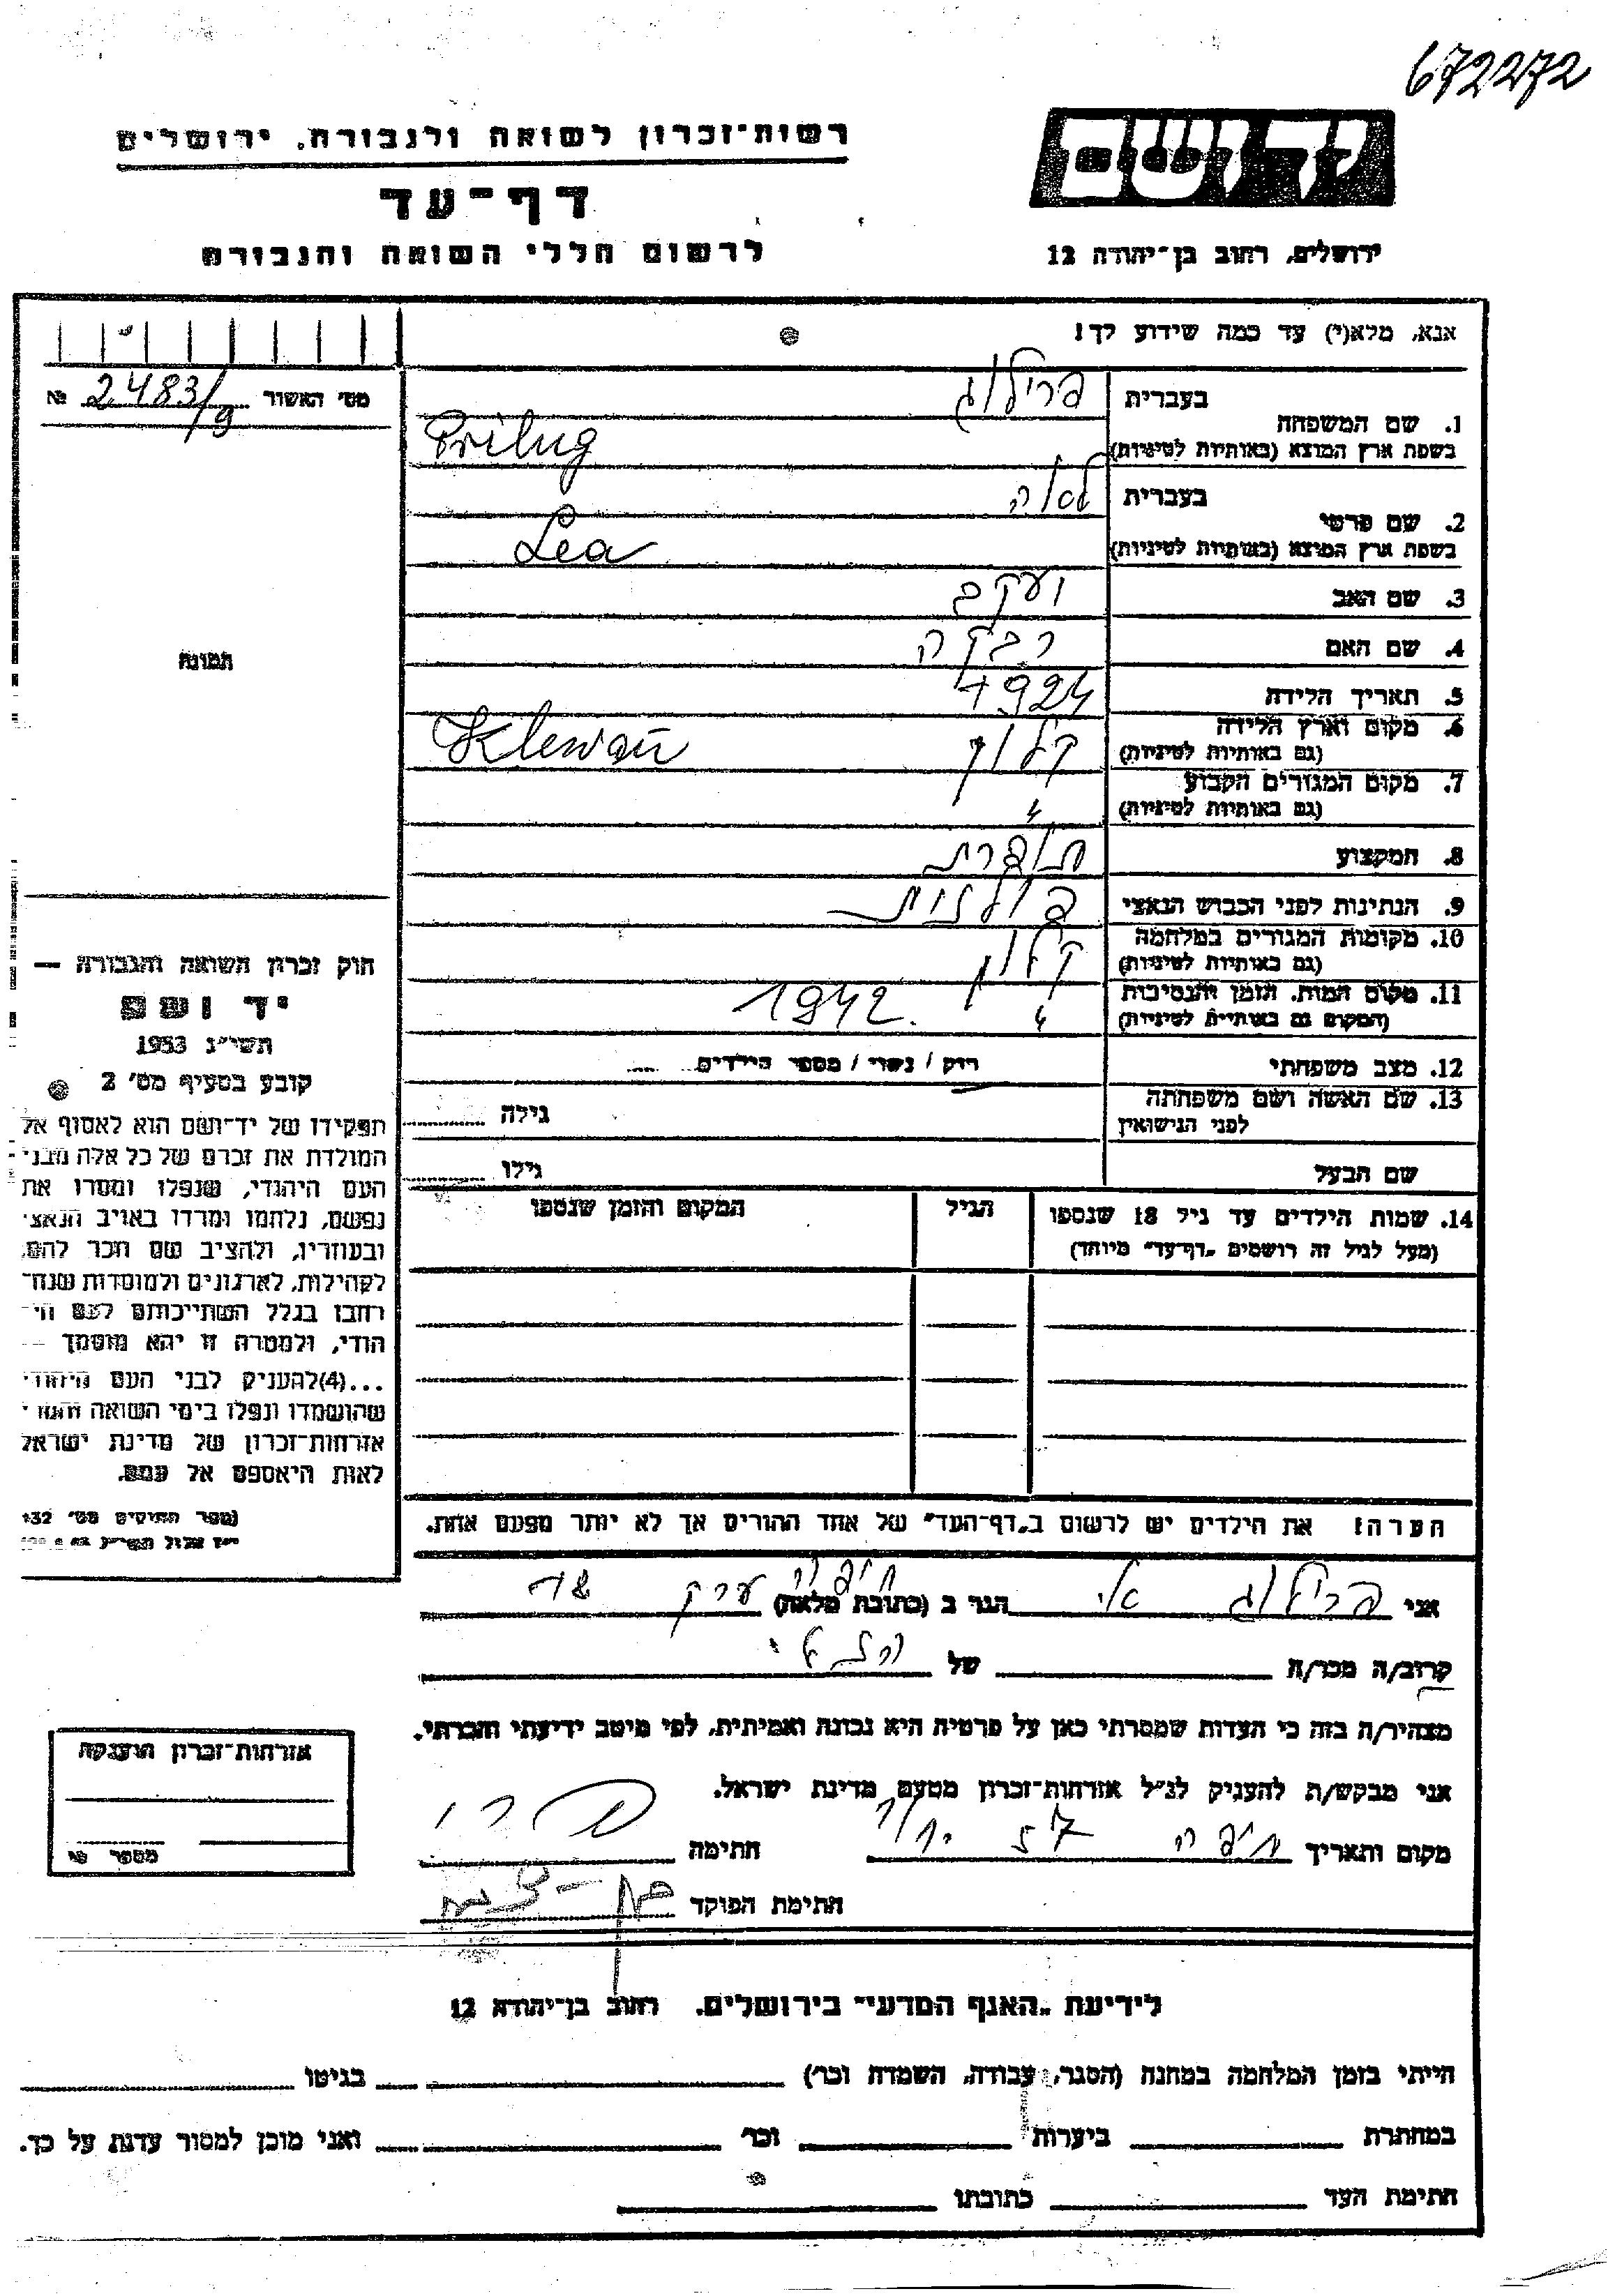 672272
יד ושם
רשות־זכרון לשואה ולגבורה, ירושלים
דף־עד
לרשום חללי השואה והגבורה
ירושלים, רחוב בן־יהודה 12
אנא, מלא(י) עד כמה שידוע לך!
מס׳ האשור 2483/9 №
1. שם המשפחה
בעברית פרילוג
בשפת ארץ המוצא (באותיות לטיניות) Prilug
2. שם פרטי
בעברית לאה
בשפת ארץ המוצא (באותיות לטיניות) Lea
3. שם האב יעקב
4. שם האם רבקה
תמונה
5. תאריך הלידה 1924
6. מקום וארץ הלידה
(גם באותיות לטיניות) קלון Klewań
7. מקום המגורים הקבוע
(גם באותיות לטיניות) "
8. המקצוע תופרת
9. הנתינות לפני הכבוש הנאצי פולנית
10. מקומות המגורים במלחמה
(גם באותיות לטיניות) קלון
11. מקום המות, הזמן והנסיבות
(המקום גם באותיות לטיניות) " 1942.
12. מצב משפחתי רוק / נשוי / מספר הילדים
13. שם האשה ושם משפחתה
לפני הנישואין גילה
שם הבעל גילו
14. שמות הילדים עד גיל 18 שנספו
(מעל לגיל זה רושמים „דף־עד" מיוחד)
הגיל
המקום והזמן שנספו
חוק זכרון השואה והגבורה —
יד ושם
תשי״ג 1953
קובע בסעיף מס׳ 2
תפקידו של יד־ושם הוא לאסוף אל
המולדת את זכרם של כל אלה מבני־
העם היהודי, שנפלו ומסרו את
נפשם, נלחמו ומרדו באויב הנאצי
ובעוזריו, ולהציב שם וזכר להם,
לקהילות, לארגונים ולמוסדות שנח־
רבו בגלל השתייכותם לעם הי־
הודי, ולמטרה זו יהא מוסמך —
...(4)להעניק לבני העם היהודי
שהושמדו ונפלו בימי השואה והמרי
אזרחות־זכרון של מדינת ישראל
לאות היאספם אל עמם.
(ספר החוקים מס׳ 132
הערה! את הילדים יש לרשום ב„דף־העד" של אחד ההורים אך לא יותר מפעם אחת.
אני פרילוג הגר ב (כתובת מלאה) חיפה
קרוב/ה מכר/ה של הנ״ל
מצהיר/ה בזה כי העדות שמסרתי כאן על פרטיה היא נכונה ואמיתית, לפי מיטב ידיעתי והכרתי.
אני מבקש/ת להעניק לנ״ל אזרחות־זכרון מטעם מדינת ישראל.
מקום ותאריך חיפה חתימה
חתימת הפוקד
אזרחות־זכרון הוענקה
מספר
לידיעת „האגף המדעי" בירושלים. רחוב בן־יהודה 12
הייתי בזמן המלחמה במחנה (הסגר, עבודה, השמדה וכו׳) בגיטו
במחתרת ביערות וכו׳ ואני מוכן למסור עדות על כך.
חתימת העד כתובתו